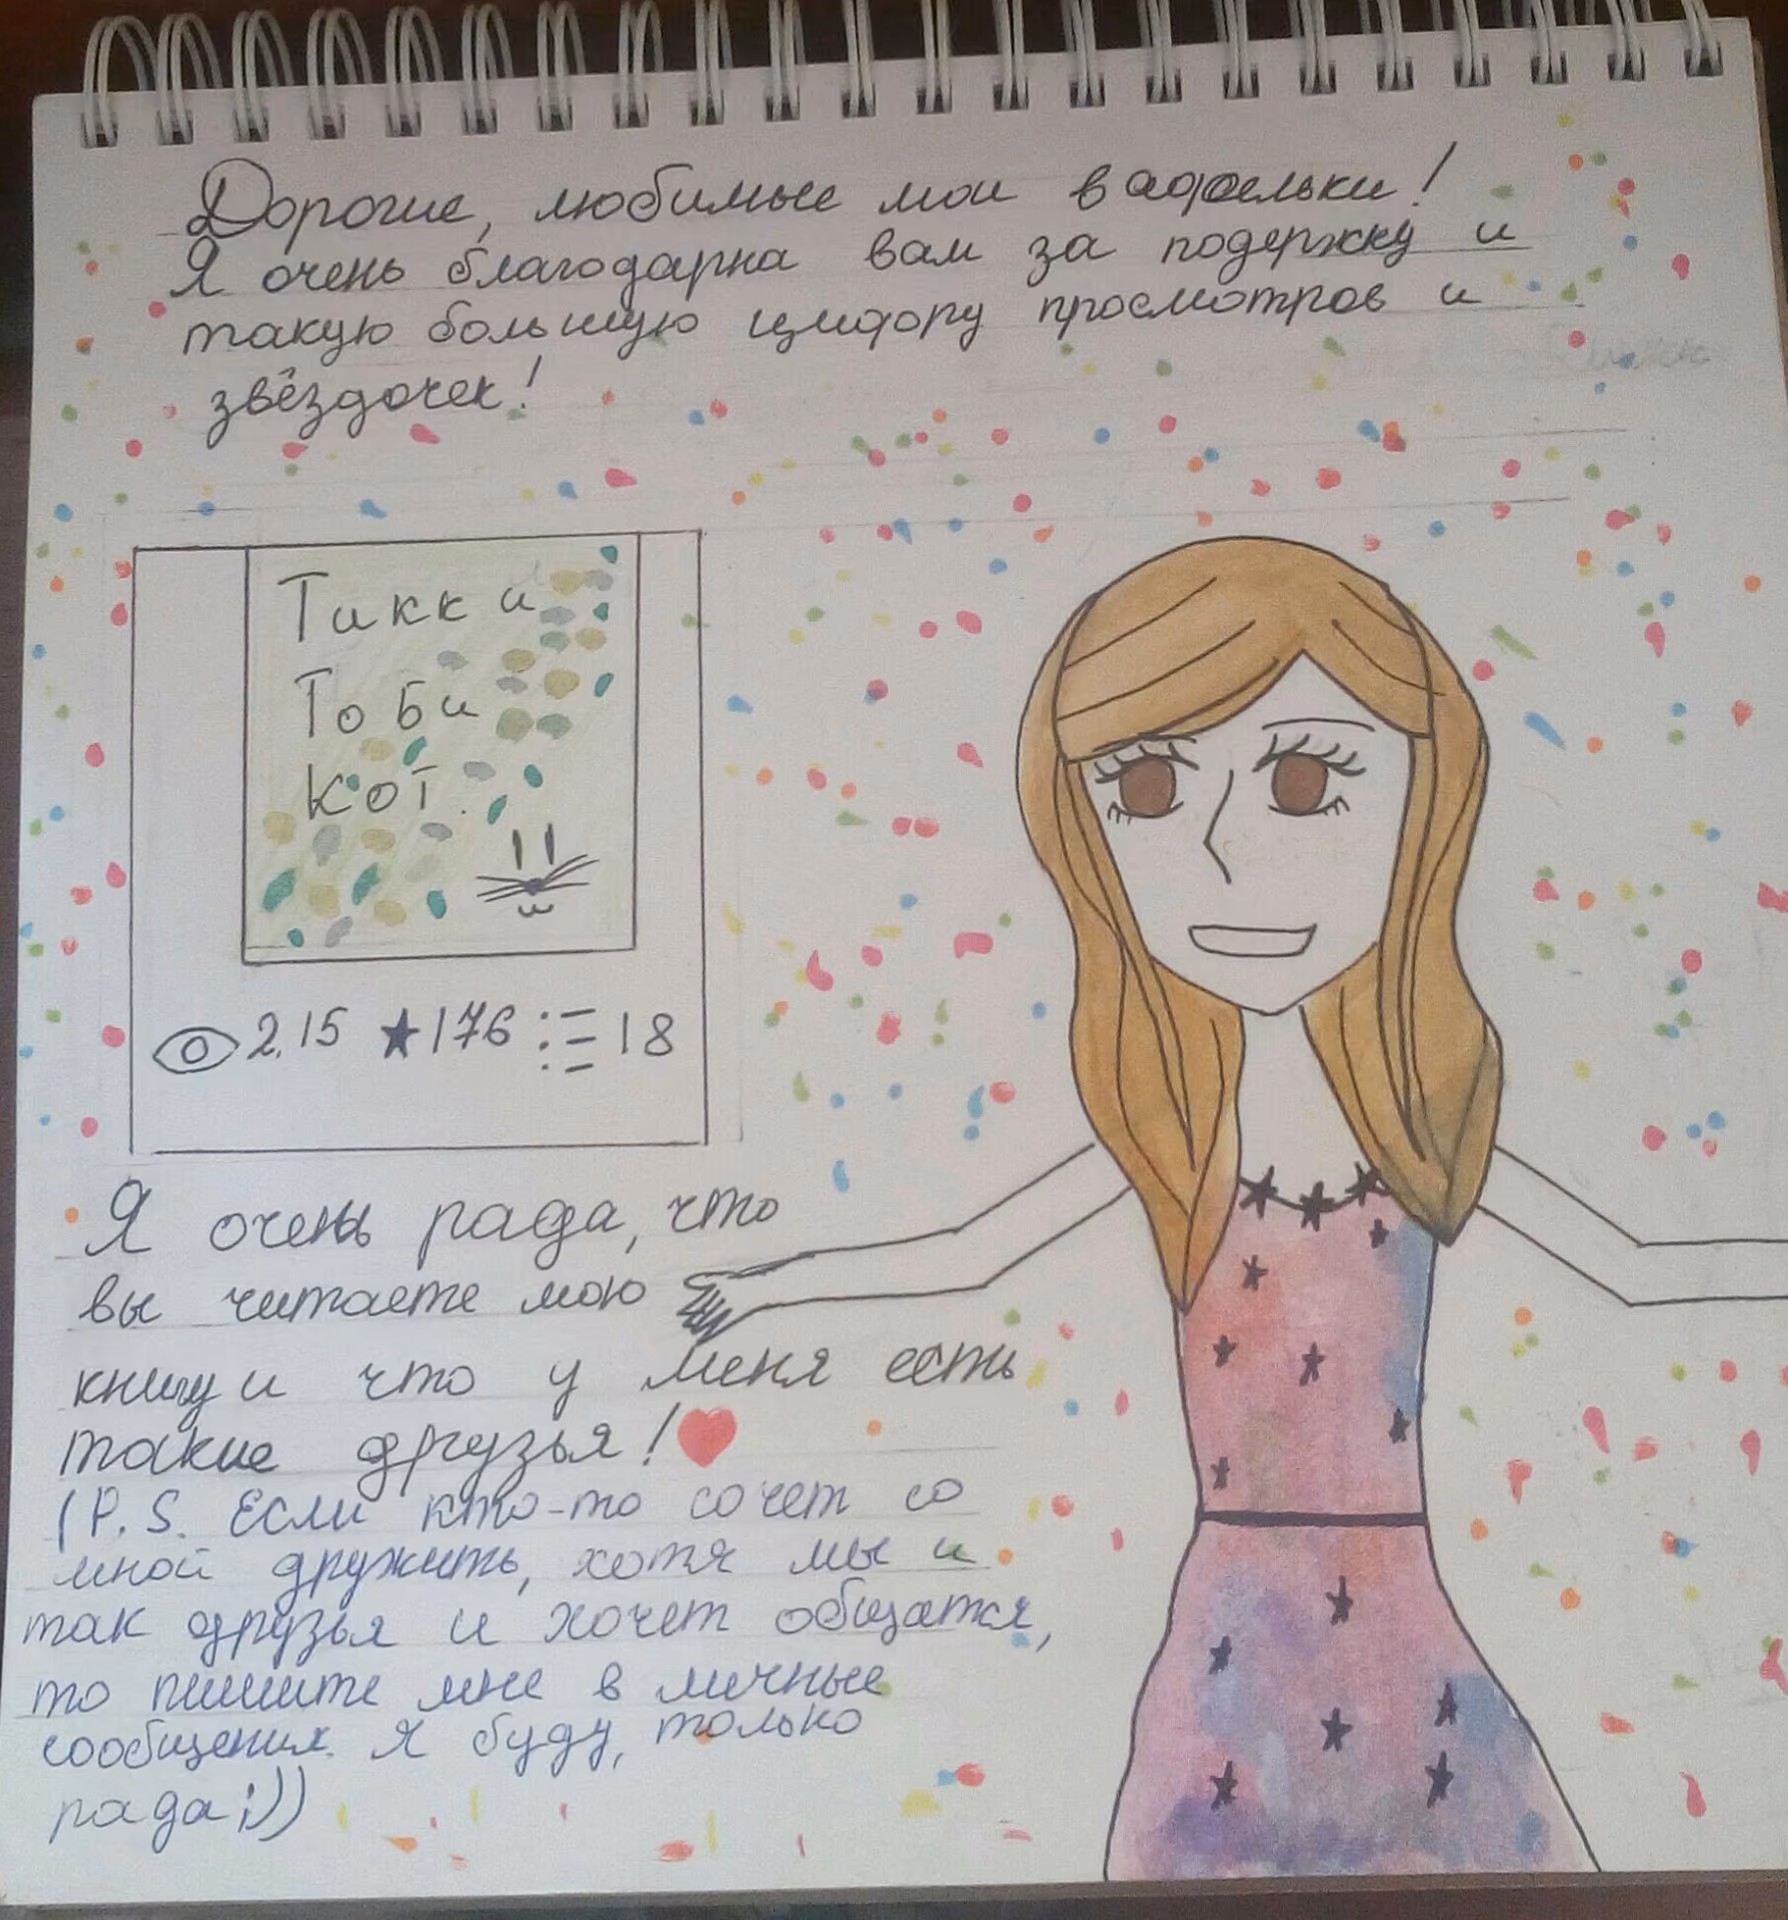 Дорогие, любимые мои вафельки!
Я очень благодарна вам за подержку и
такую большую цифру просмотров и
звёздочек!
Тикки
Тоби
Кот.
2.15 ★176 18
Я очень рада, что
вы читаете мою
книгу и что у меня есть
такие друзья!
(P.S. Если кто-то хочет со
мной дружить, хотя мы и
так друзья и хочет общатся,
то пишите мне в личные
сообщения. Я буду, только
рада;))